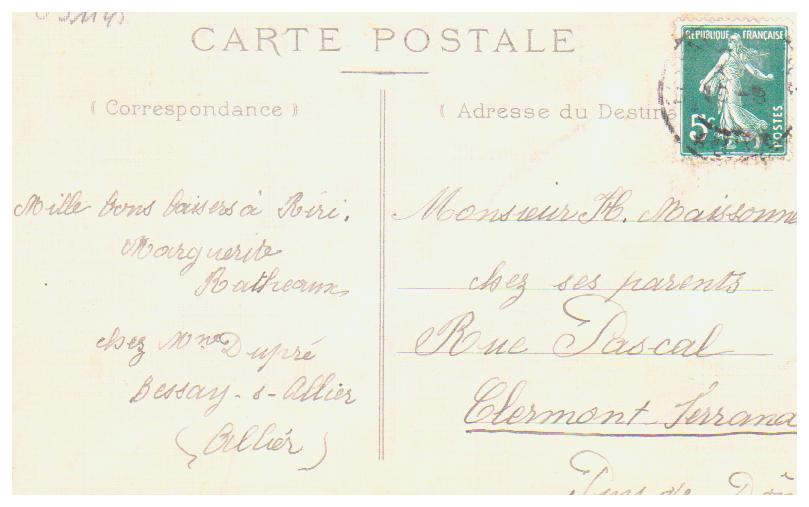 CARTE POSTALE
( Correspondance )
( Adresse du Destin
REPUBLIQUE FRANÇAISE
5c
POSTES
Mille bons baisers à Riri.
Marguerite
Ratheaux
chez Mme Dupré
Bessay-s-Allier
(Allier)
Monsieur H. Maisonne
chez ses parents
Rue Pascal
Clermont Ferrand
Puy de Dôm